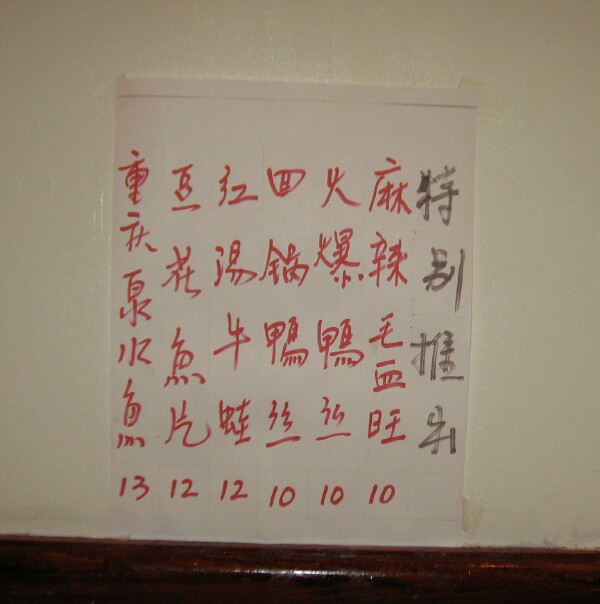 特别推出
麻辣毛血旺 10
火爆鴨丝 10
回锅鴨丝 10
红湯牛蛙 12
豆花魚片 12
重庆泉水魚 13